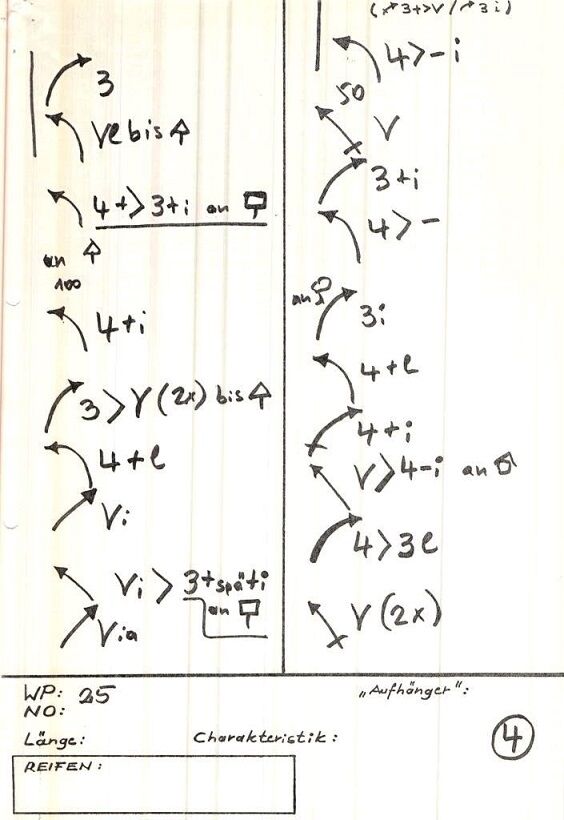 3
Ve bis
4+>3+i an
an
100
4+i
3>V(2x) bis
4+e
Vi
Vi > 3+spät i
an
Via
(3+>V/3i)
4>-i
50
V
3+i
4>-
an
3i
4+e
4+i
V>4-i an
4>3e
V(2x)
WP: 25
NO:
Länge:
Charakteristik:
„Aufhänger":
4
REIFEN: